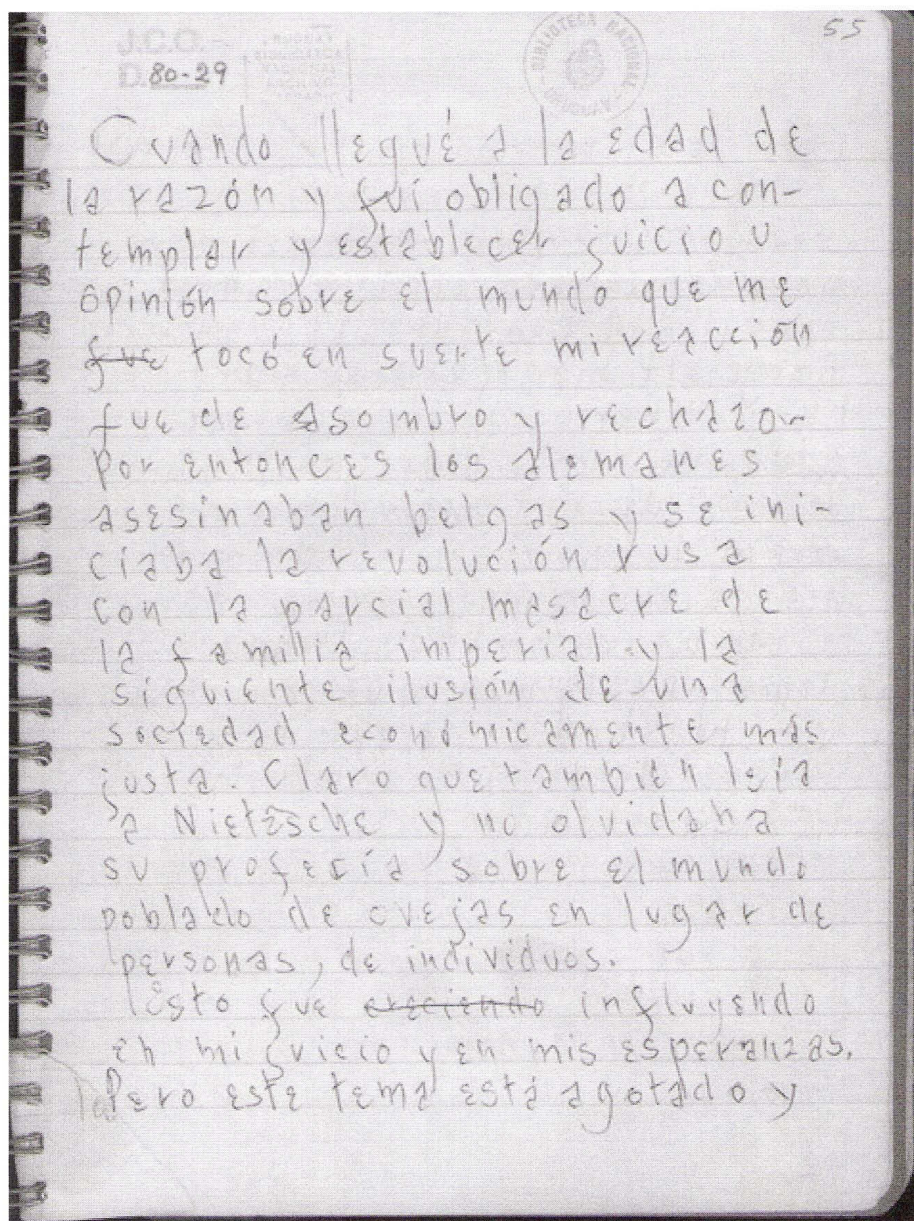 55
J.C.O.
D.80-29
BIBLIOTECA NACIONAL
URUGUAY
Cuando llegué a la edad de
la razón y fuí obligado a con-
templar y establecer juicio u
opinión sobre el mundo que me
fue tocó en suerte mi reacción
fue de asombro y rechazo-
por entonces los alemanes
asesinaban belgas y se ini-
ciaba la revolución rusa
con la parcial masacre de
la familia imperial y la
siguiente ilusión de una
sociedad económicamente más
justa. Claro que también leía
a Nietzsche y no olvidaba
su profecía sobre el mundo
poblado de ovejas en lugar de
personas, de individuos.
Esto fue creciendo influyendo
en mi juicio y en mis esperanzas.
Pero este tema está agotado y